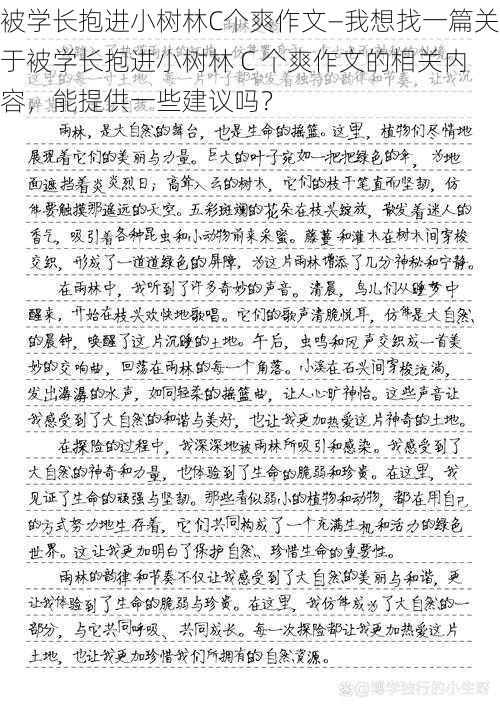 被学长抱进小树林C个爽作文—我想找一篇关
于被学长抱进小树林 C 个爽作文的相关内
容，能提供一些建议吗？
雨林，是大自然的舞台，也是生命的摇篮。这里，植物们尽情地
展现着它们的美丽与力量。巨大的叶子宛如一把把绿色的伞，为地
面遮挡着炎炎烈日；高耸入云的树木，它们的枝干笔直而坚韧，仿
佛要触摸那遥远的天空。五彩斑斓的花朵在枝头绽放，散发着迷人的
香气，吸引着各种昆虫和小动物前来采蜜。藤蔓和灌木在树木间穿梭
交织，形成了一道道绿色的屏障，为这片雨林增添了几分神秘和宁静。
在雨林中，我听到了许多奇妙的声音。清晨，鸟儿们从睡梦中
醒来，开始在枝头欢快地歌唱。它们的歌声清脆悦耳，仿佛是大自然
的晨钟，唤醒了这片沉睡的土地。午后，虫鸣和风声交织成一首美
妙的交响曲，回荡在雨林的每一个角落。小溪在石头间穿梭流淌，
发出潺潺的水声，如同轻柔的摇篮曲，让人心旷神怡。这些声音让
我感受到了大自然的和谐与美好，也让我更加热爱这片神奇的土地。
在探险的过程中，我深深地被雨林所吸引和感染。我感受到了
大自然的神奇和力量，也体验到了生命的脆弱和珍贵。在这里，我
见证了生命的顽强与坚韧。那些看似弱小的植物和动物，都在用自己
的方式努力地生存着，它们共同构成了一个充满生机和活力的绿色
世界。这让我更加明白了保护自然、珍惜生命的重要性。
雨林的韵律和节奏不仅让我感受到了大自然的美丽与和谐，更
让我体验到了生命的脆弱与珍贵。在这里，我仿佛成为了大自然的一
部分，与它共同呼吸、共同成长。每一次探险都让我更加热爱这片
土地，也让我更加珍惜我们所拥有的自然资源。
@博学独行的小生呀